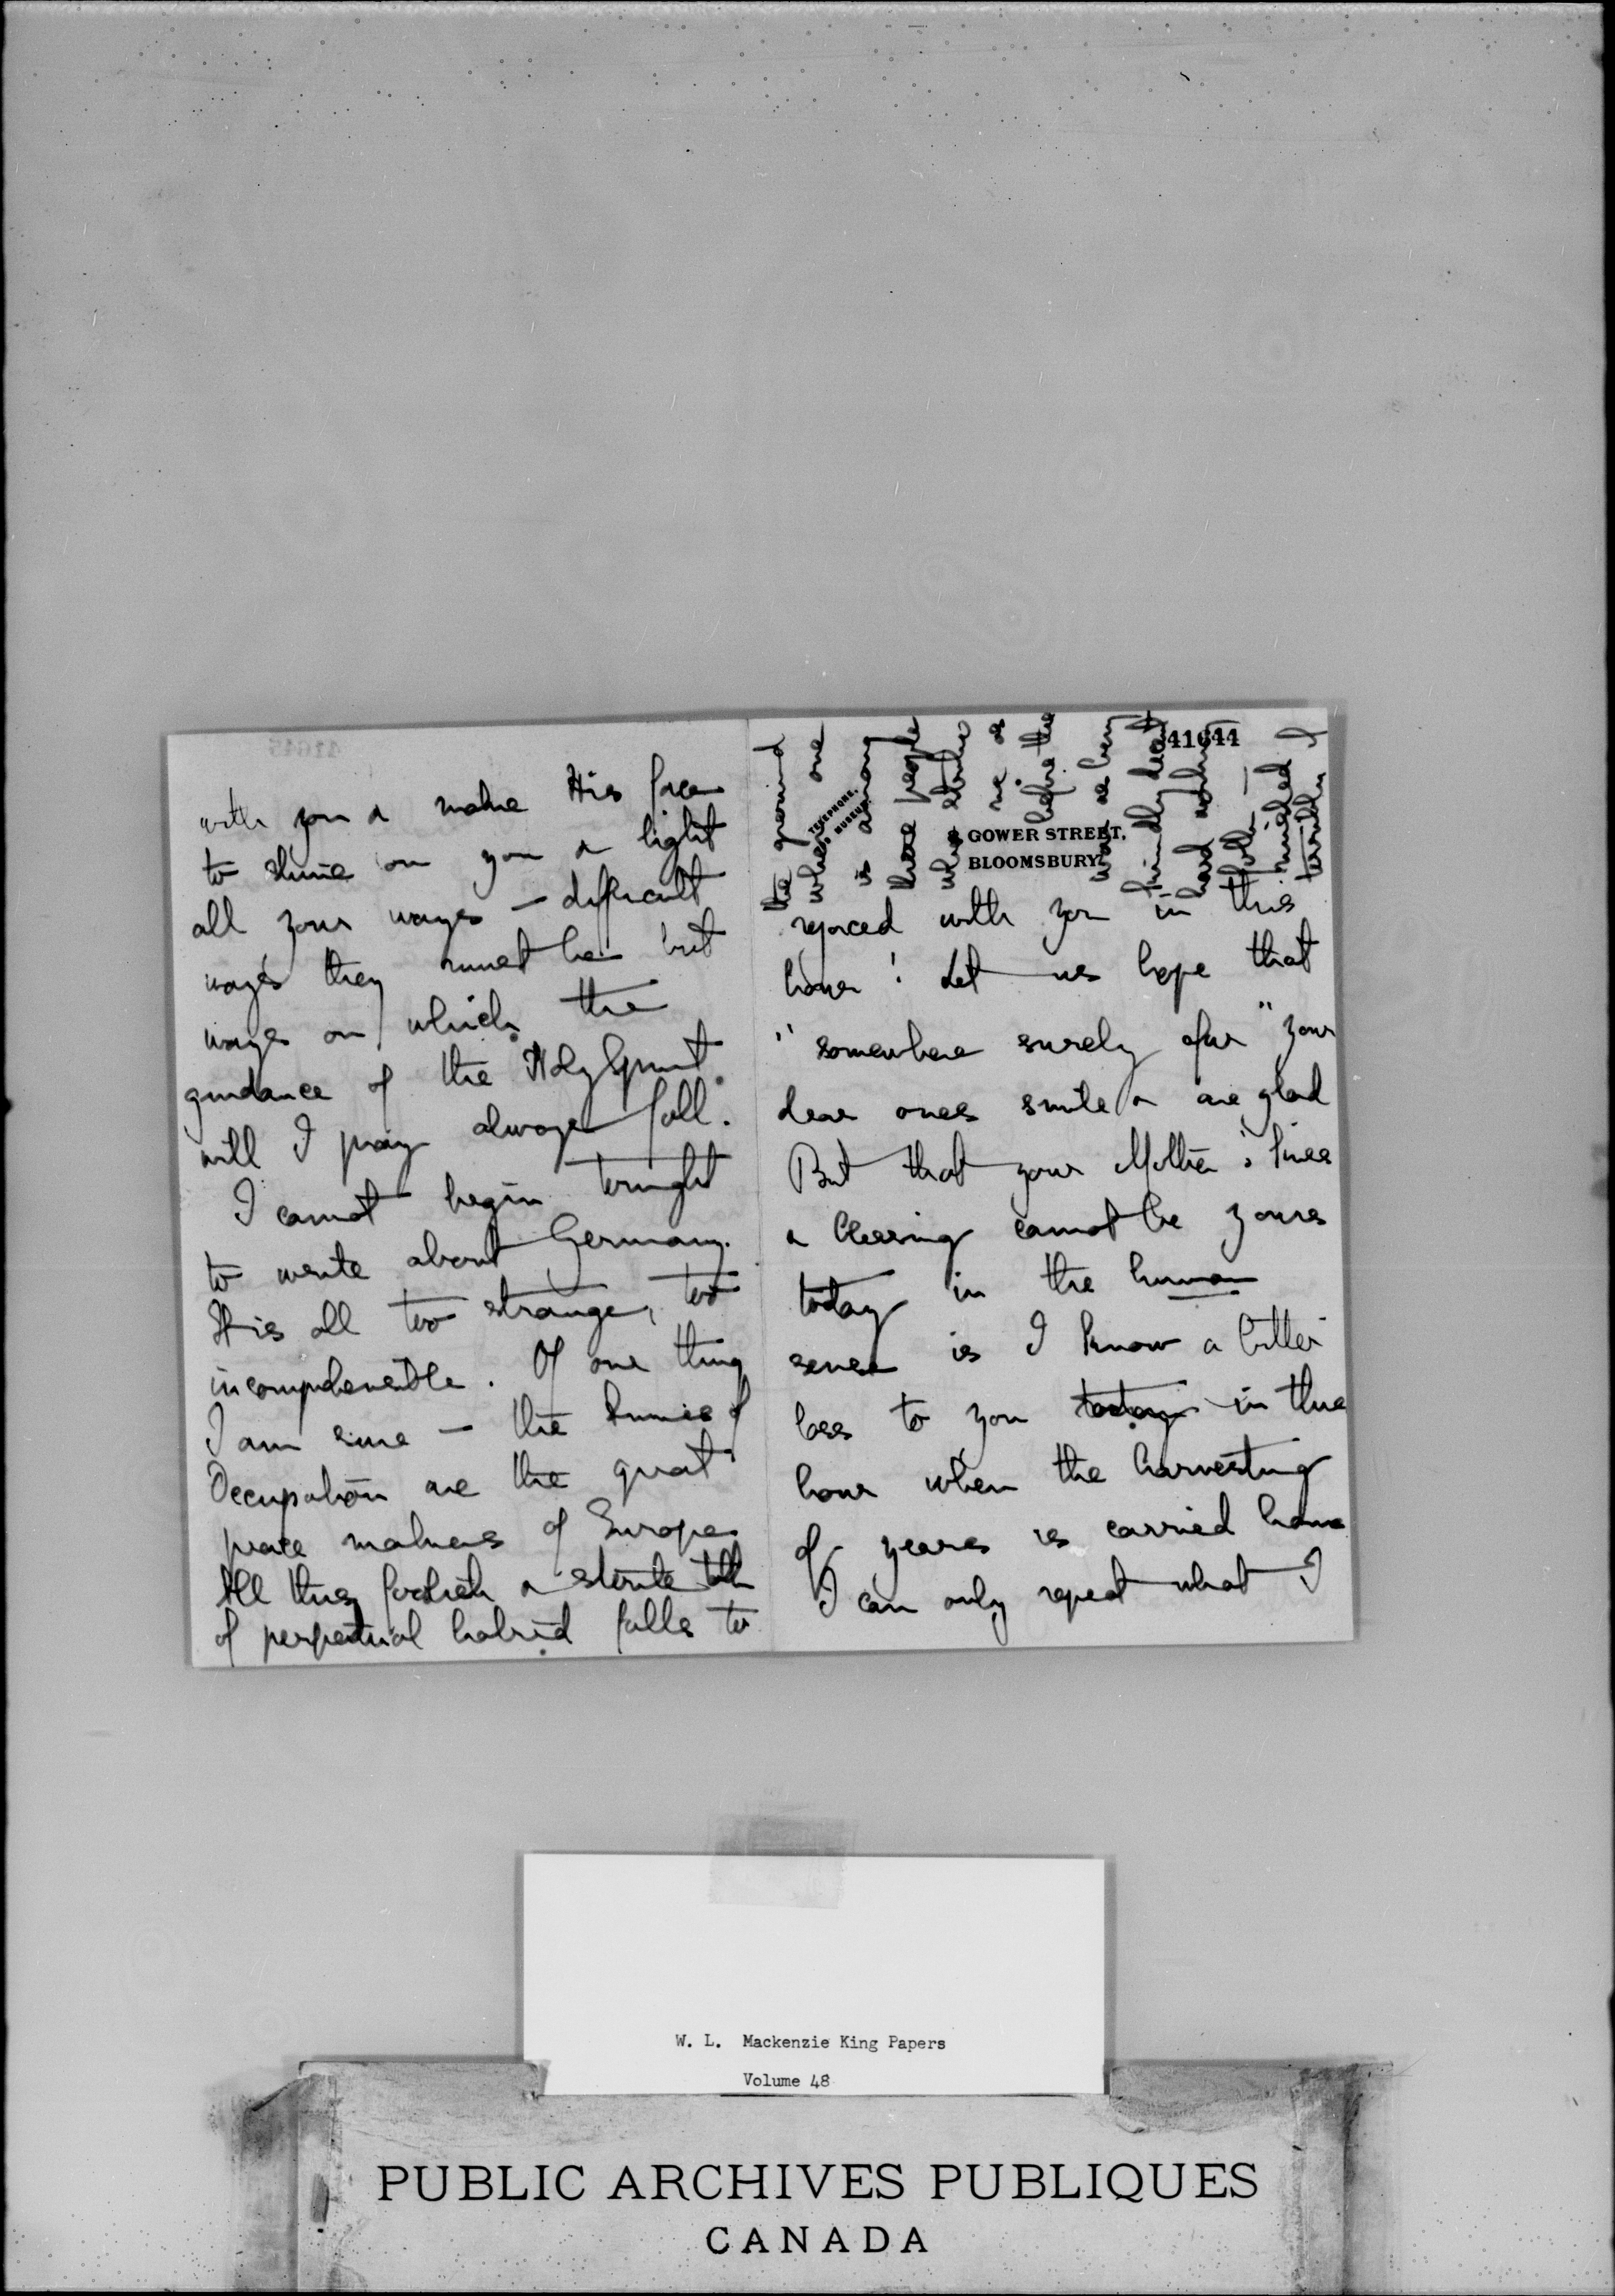 with you & make His face
to shine on you & light
all your ways — difficult
ways they must be but
ways on which the
guidance of the Holy Spirit
will I pray always fall.
I cannot begin tonight
to write about Germany.
It is all too strange, too
incomprehensible. Of one thing
I am sure — the Armies of
Occupation are the great
peace makers of Europe.
All this foolish & sterile talk
of perpetual hatred falls to
41644
the ground
when one
is among
these people
who
before the
hard
terribly
TELEPHONE,
MUSEUM
GOWER STREET,
BLOOMSBURY.
rejoiced with you in this
hour! Let us hope that
"somewhere surely afar" your
dear ones smile & are glad
But that your Mother's kiss
& blessing cannot be yours
today in the human
sense is I know a bitter
loss to you today in this
hour when the harvesting
of years is carried home
I can only repeat what I
W. L. Mackenzie King Papers
Volume 48
PUBLIC ARCHIVES PUBLIQUES
CANADA